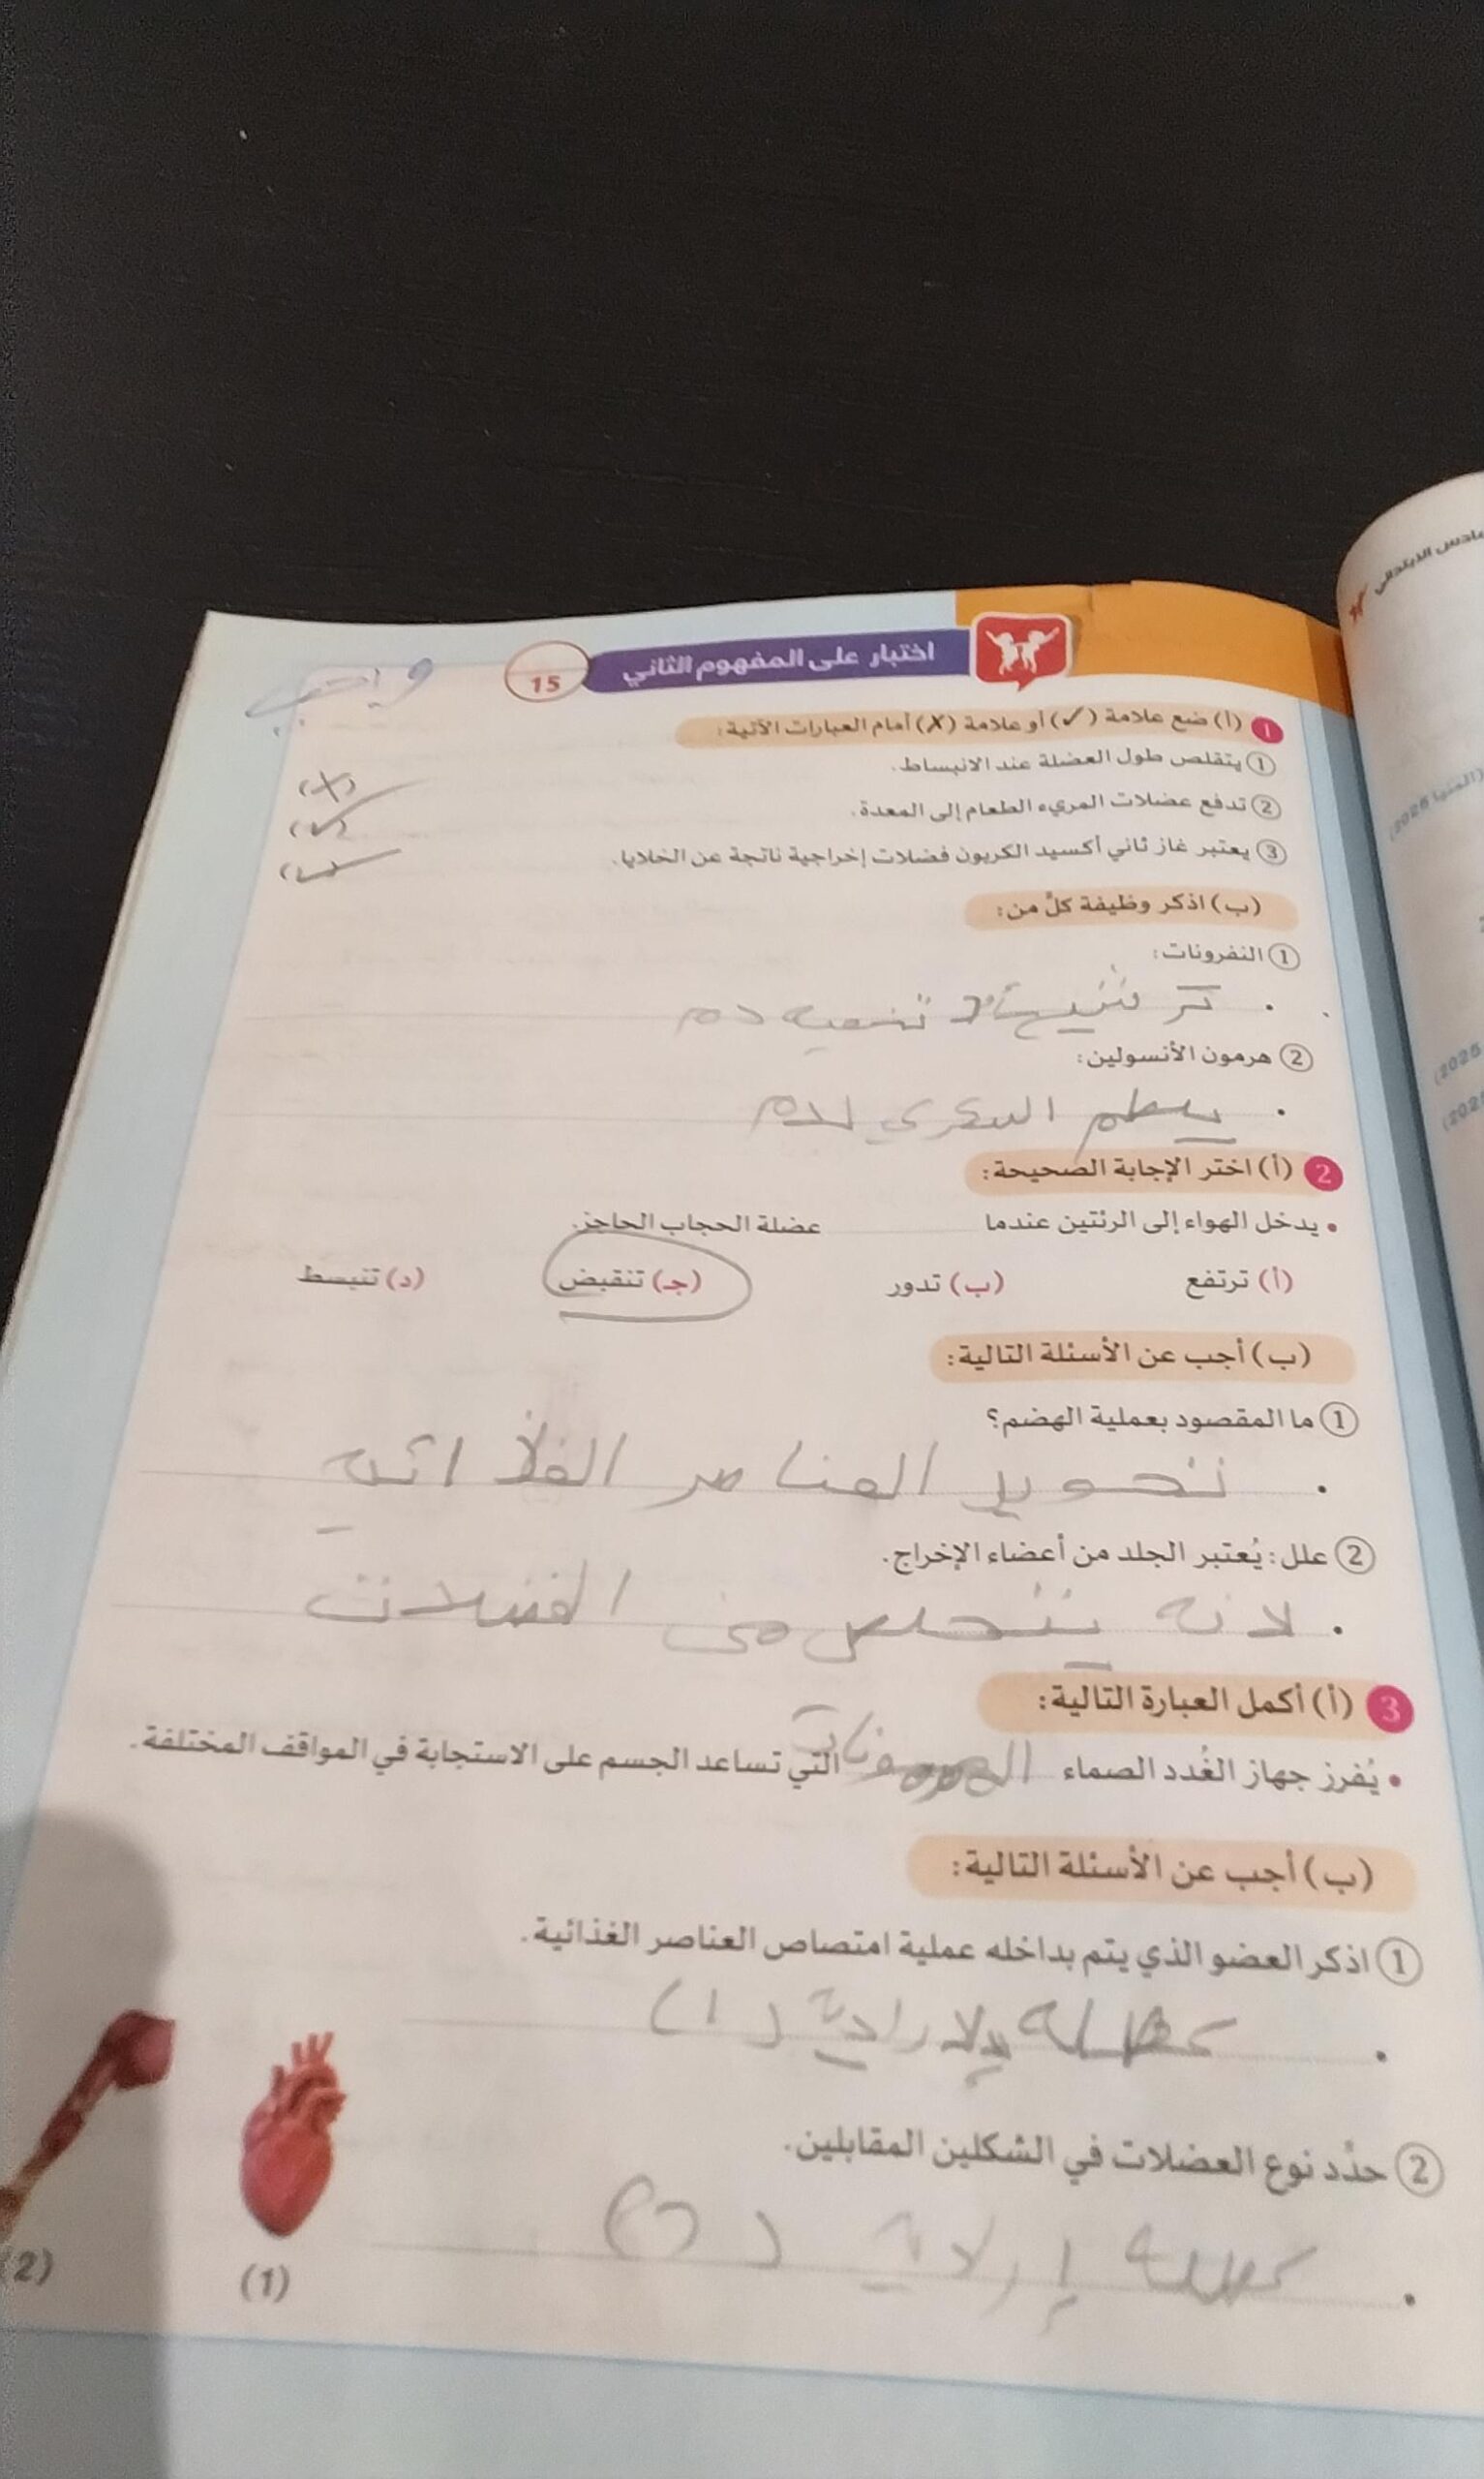 اختبار على المفهوم الثاني
15
واجب
1 (أ) ضع علامة (✓) أو علامة (✗) أمام العبارات الآتية:
① يتقلص طول العضلة عند الانبساط. (✗)
② تدفع عضلات المريء الطعام إلى المعدة. (✓)
③ يعتبر غاز ثاني أكسيد الكربون فضلات إخراجية ناتجة عن الخلايا. (✓)
(ب) اذكر وظيفة كلٍّ من:
① النفرونات:
دم
② هرمون الأنسولين:
السكري لدم
2 (أ) اختر الإجابة الصحيحة:
• يدخل الهواء إلى الرئتين عندما عضلة الحجاب الحاجز.
(أ) ترتفع (ب) تدور (جـ) تنقبض (د) تنبسط
(ب) أجب عن الأسئلة التالية:
① ما المقصود بعملية الهضم؟
. تحويل العناصر
② علل: يُعتبر الجلد من أعضاء الإخراج.
. لانه يتخلص من الفضلات
3 (أ) أكمل العبارة التالية:
• يُفرز جهاز الغُدد الصماء التي تساعد الجسم على الاستجابة في المواقف المختلفة.
(ب) أجب عن الأسئلة التالية:
① اذكر العضو الذي يتم بداخله عملية امتصاص العناصر الغذائية.
(1)
② حدِّد نوع العضلات في الشكلين المقابلين.
(1)
2)
سادس الابتدائي
(المنيا 2025)
(2025